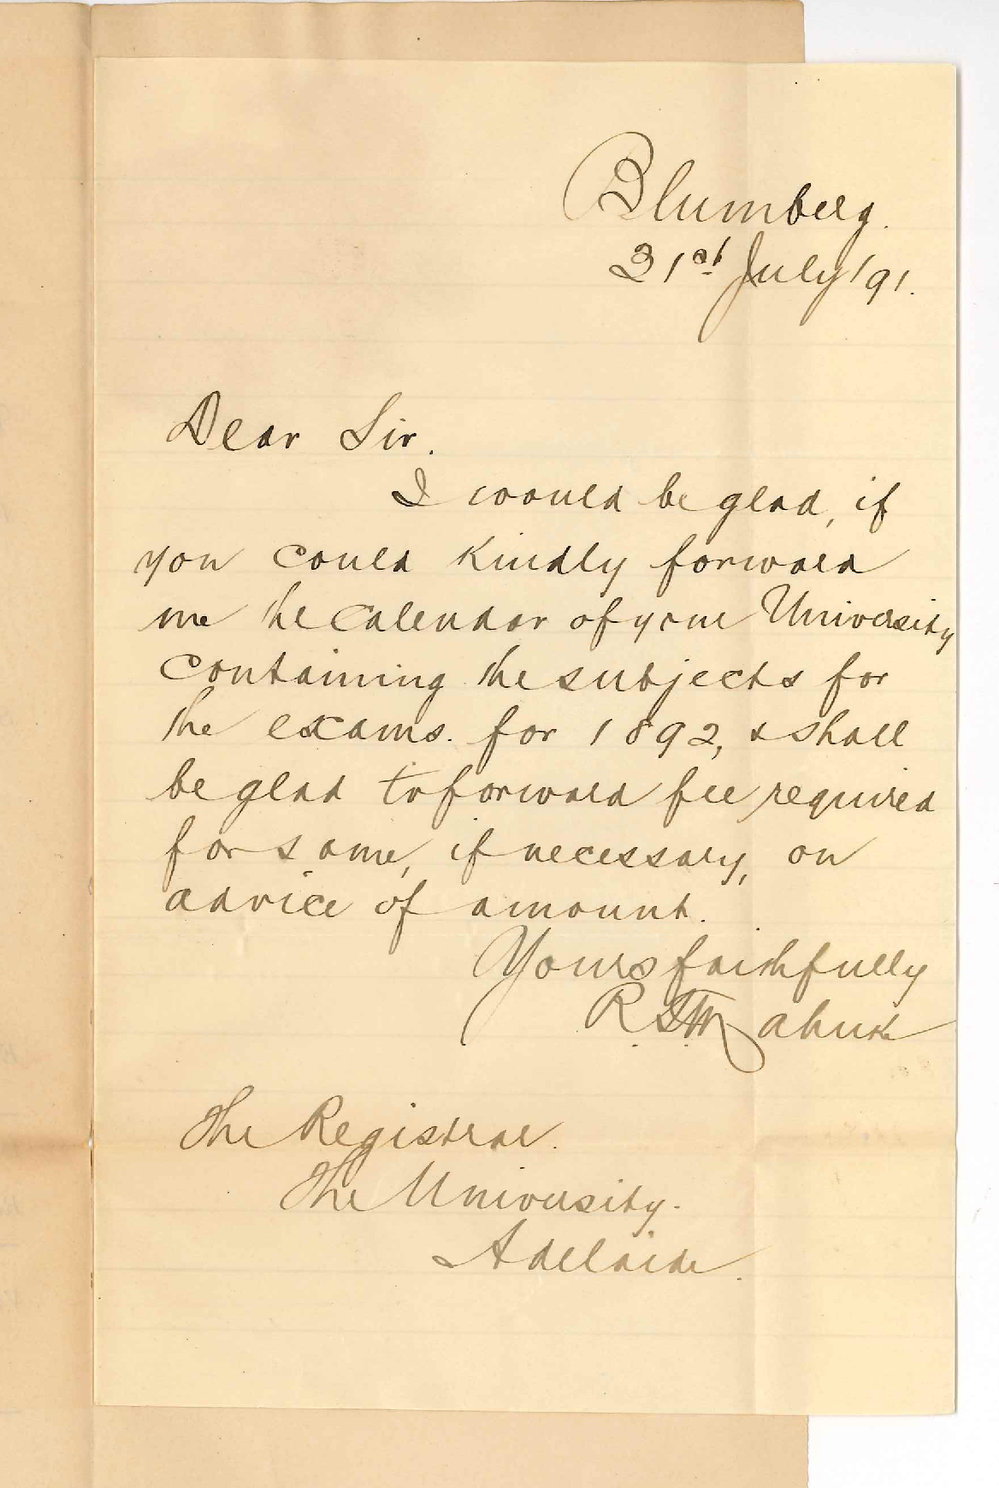 Blumberg.
31st July '91.
Dear Sir.
I would be glad, if
you could kindly forward
me the Calendar of your University
containing the subjects for
the exams. for 1892, & shall
be glad to forward fee required
for same, if necessary, on
advice of amount.
Yours faithfully
The Registrar.
The University.
Adelaide.